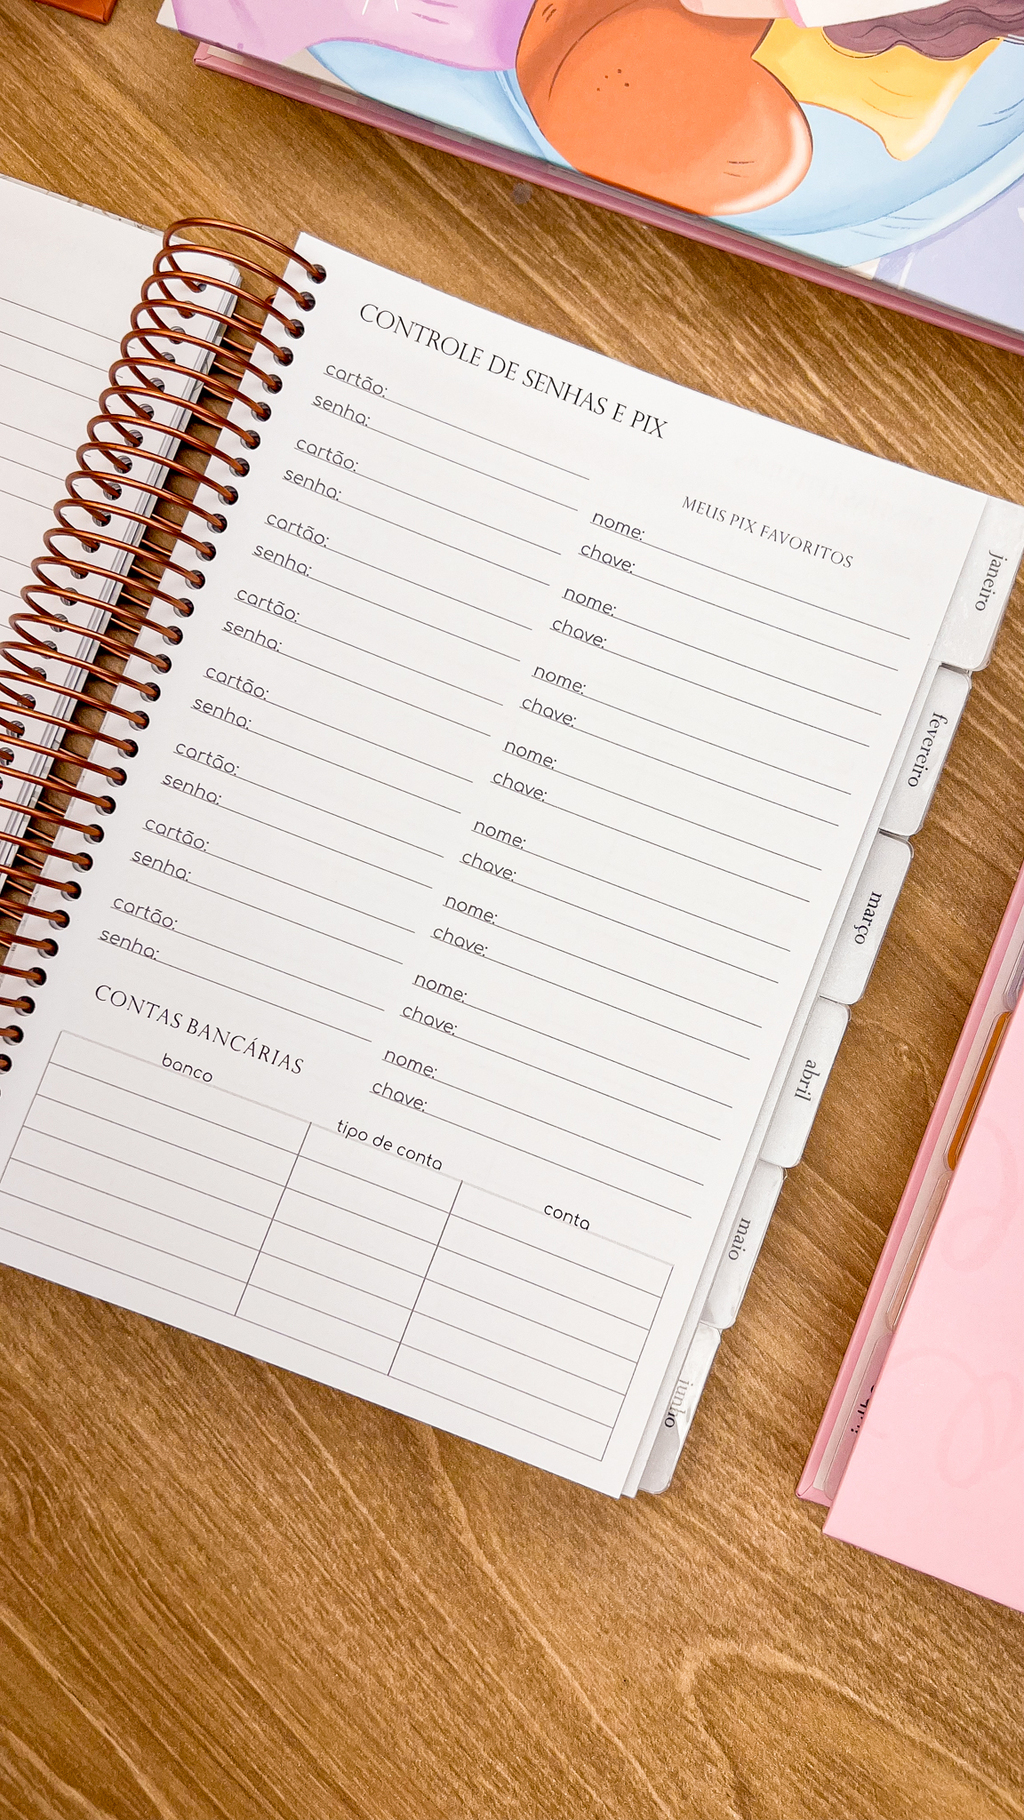 CONTROLE DE SENHAS E PIX
cartão:
senha:
cartão:
senha:
cartão:
senha:
cartão:
senha:
cartão:
senha:
cartão:
senha:
cartão:
senha:
cartão:
senha:
MEUS PIX FAVORITOS
nome:
chave:
nome:
chave:
nome:
chave:
nome:
chave:
nome:
chave:
nome:
chave:
nome:
chave:
nome:
chave:
CONTAS BANCÁRIAS
banco
tipo de conta
conta
janeiro
fevereiro
março
abril
maio
junho